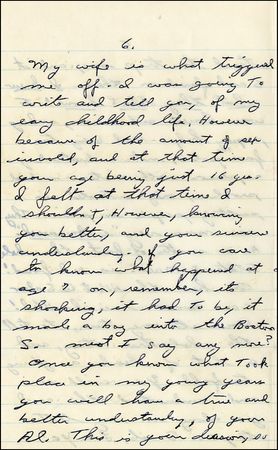 6.
My wife is what triggered
me off. I was going To
write and tell you, of my
early childhood life. However
because of the amount of sex
involed, and at that time
your age being just 16 yrs.
I felt at that time I
shouldn't, However, knowing
you better, and your sincere
understandy. if you care
to know what happened at
age 7 on, remember, its
shocking, it had To be, it
made a boy into the Boston
S. must I say any more?
Once you know what Took
place in my young years
you will have a true and
better understandy, of your
Al. This is your decision, so